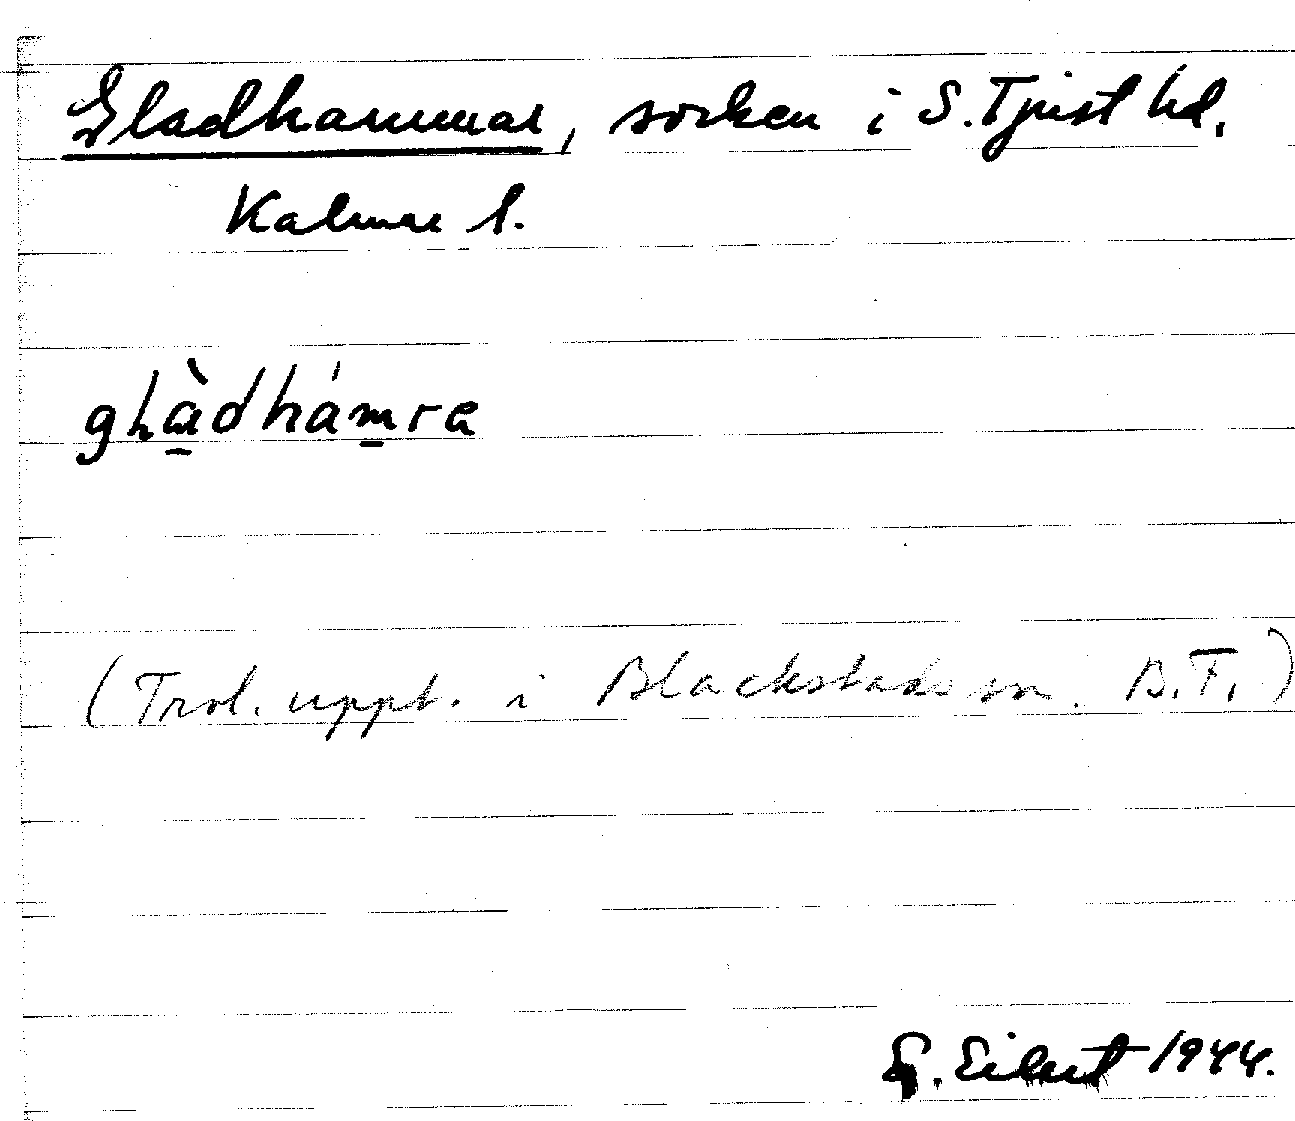 Gladhammar, socken i S. Tjust hd.
Kalmar l.
ghàdhámra
(Trol. uppt. i Blackstads sn. B.T.)
G. Eilert 1944.